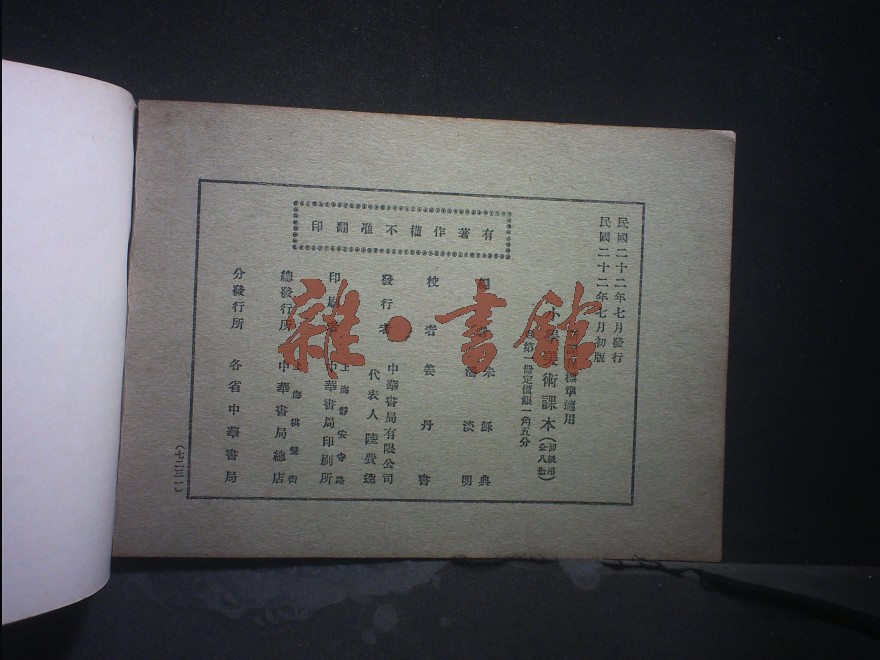 民國二十二年七月發行
民國二十二年七月初版
標準適用
小學美術課本
(初級用全八册)
第一册定價銀一角五分
有著作權不准翻印
朱穌典
潘淡明
校者 姜丹書
發行者 中華書局有限公司
代表人陸費逵
印刷者 上海靜安寺路
中華書局印刷所
總發行所 上海棋盤街
中華書局總店
分發行所 各省中華書局
(七二三一)
雜·書館